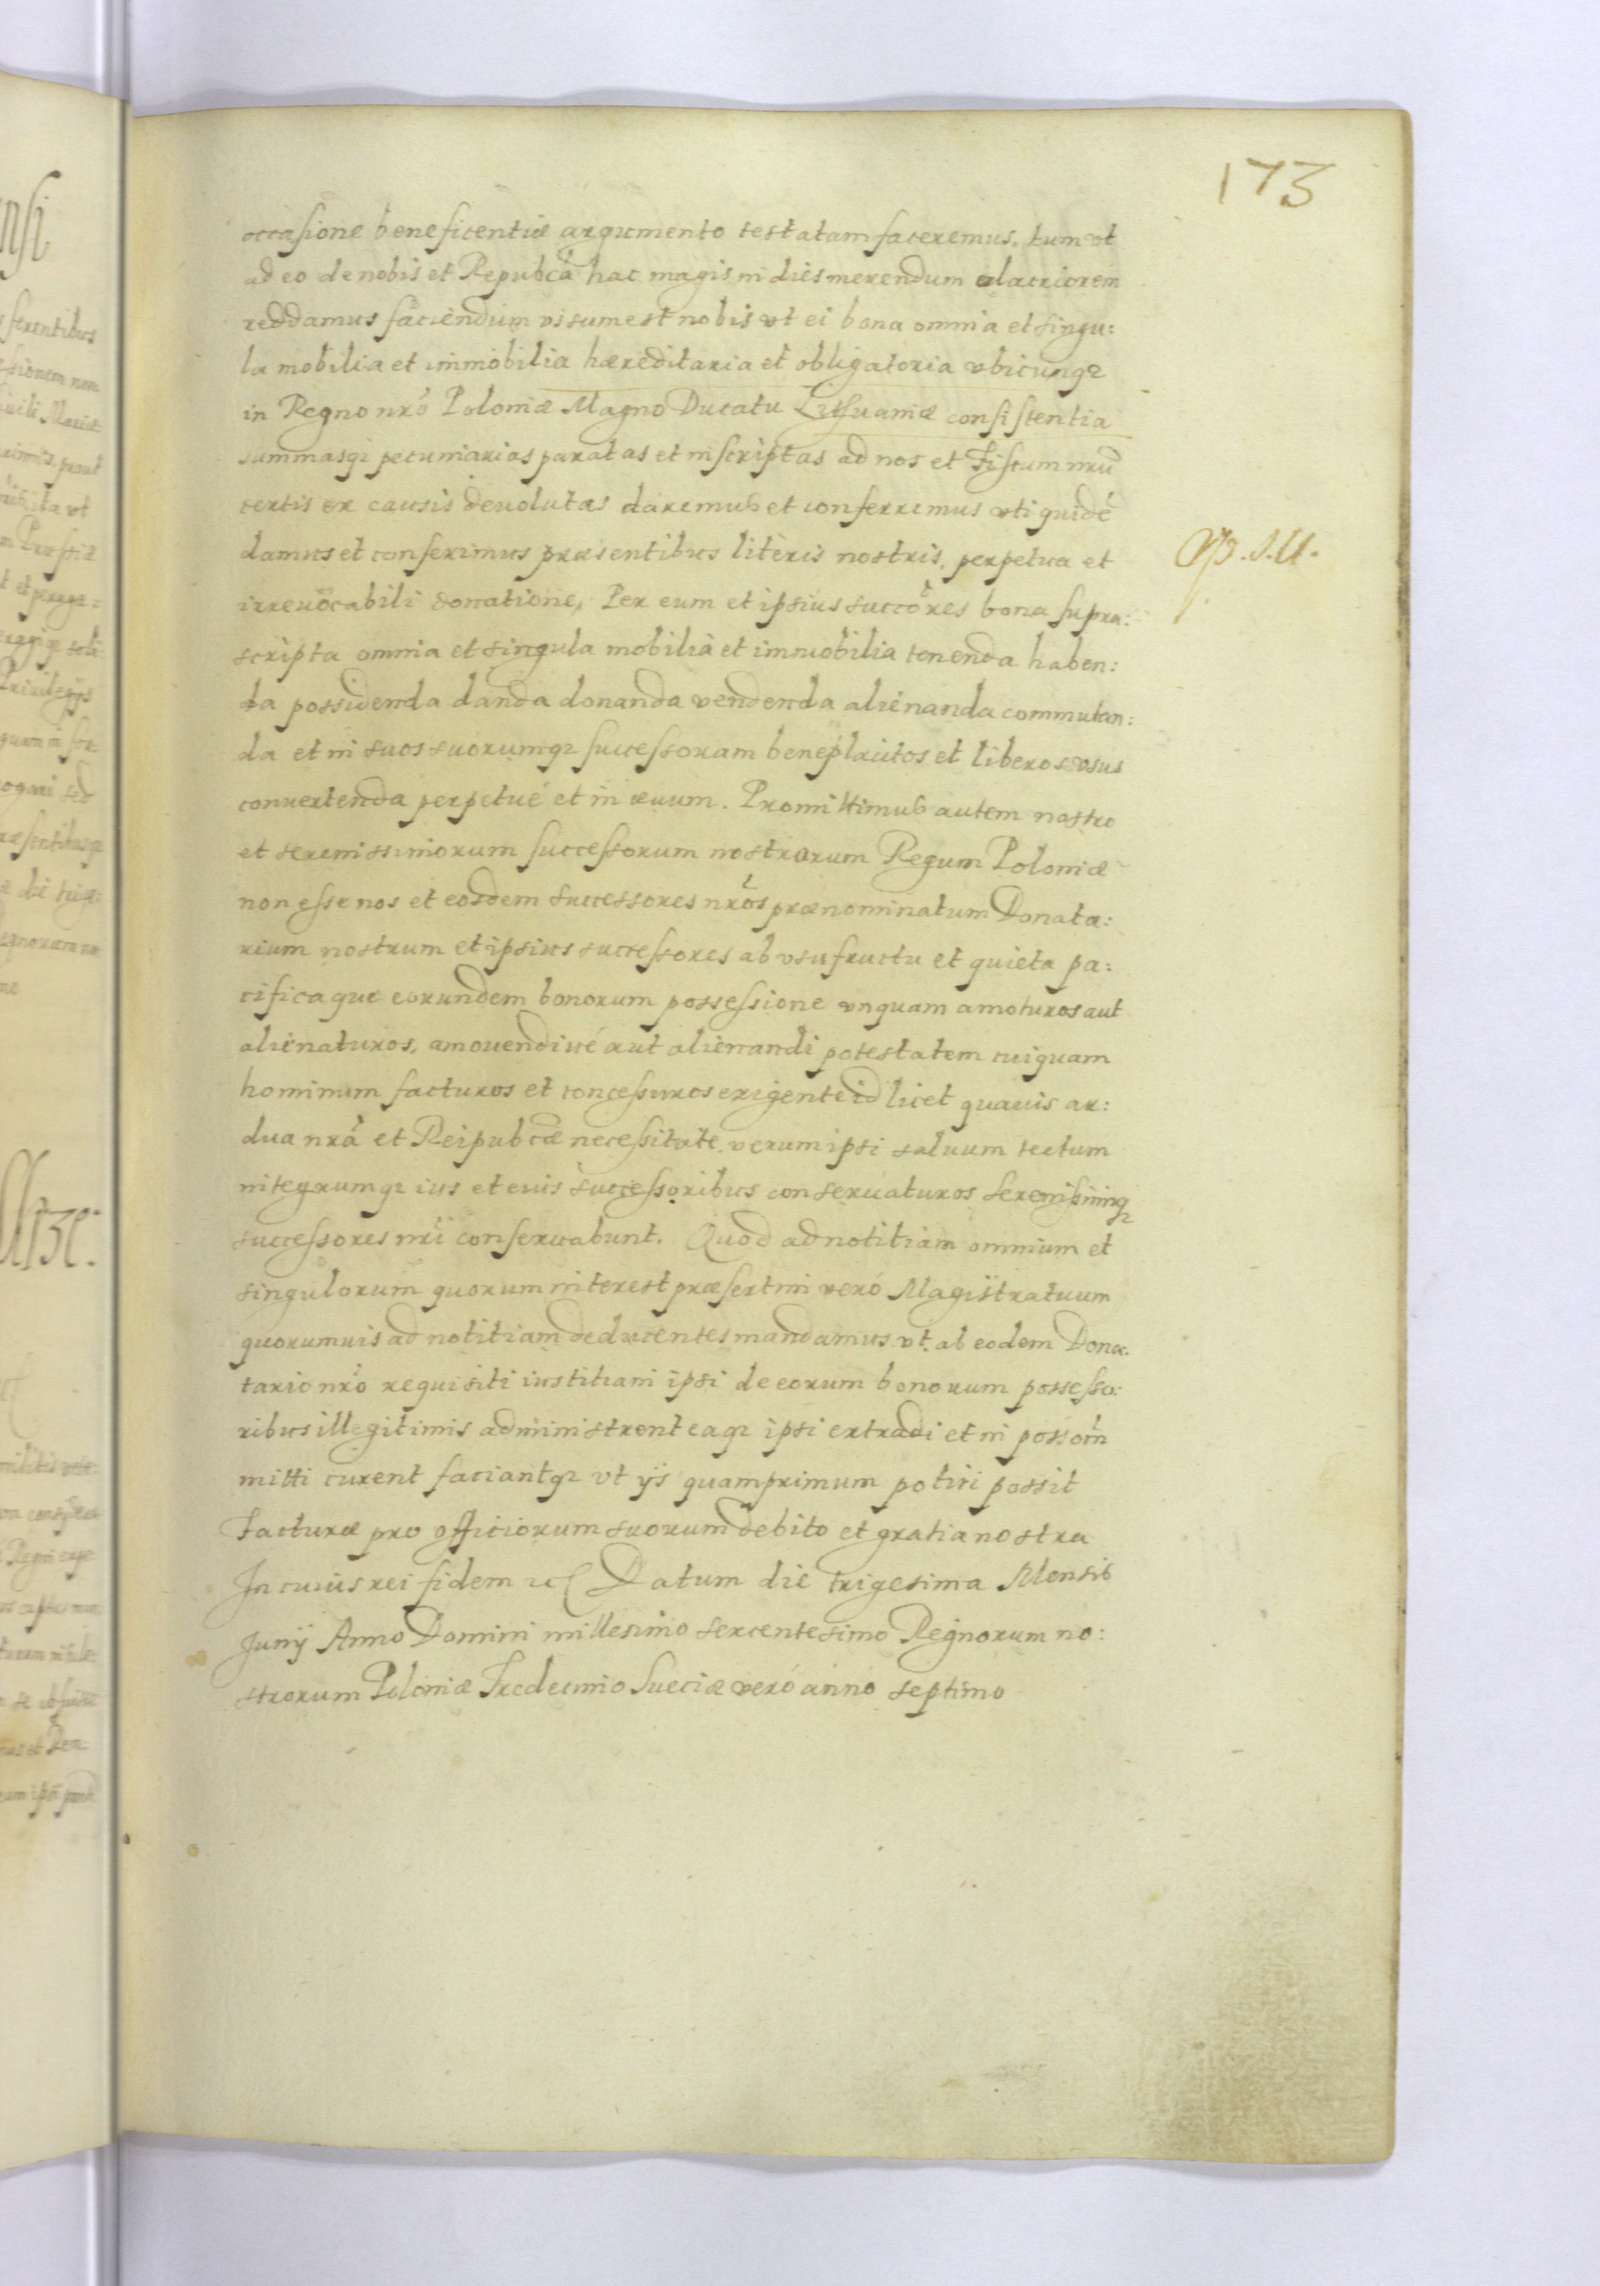 173
occasione beneficentiæ argumento testatam faceremus, tum vt
ad eo de nobis et Repubcã hac magis in dies merendum alacriorem
reddamus faciendum visum est nobis vt ei bona omnia et singu:
la mobilia et immobilia hæreditaria et obligatoria vbicunqз
in Regno nrõ Poloniæ Magno Ducatu Lithuaniæ consistentia
summasqз pecuniarias paratas et inscriptas ad nos et Fiscum nrũ
certis ex causis deuolutas daremus et conferremus vti quidẽ
damus et conferimus præsentibus literis nostris, perpetua et
Op. S. U.
irreuocabili donatione, Per eum et ipsius succõres bona supra:
scripta omnia et singula mobilia et immobilia tenenda haben:
da possidenda danda donanda vendenda alienanda commutan:
da et in suos suorumqз successorum beneplacitos et liberos vsus
conuertenda perpetué et in æuum. Promittimus autem nostro
et serenissimorum successorum nostrorum Regum Poloniæ
non esse nos et eosdem successores nrõs prænominatum Donata:
rium nostrum et ipsius successores ab vsufructu et quieta pa:
cificaque eorundem bonorum possessione vnquam amoturos aut
alienaturos, amouendiué aut alienandi potestatem cuiquam
hominum facturos et concessuros exigente id licet quauis ar:
dua nrã et Reipubcæ necessitate, verum ipsi saluum tectum
integrumqз ius et eius successoribus conseruaturos serenissimiqз
successores nrĩ conseruabunt. Quod ad notitiam omnium et
singulorum quorum interest præsertim veró Magistratuum
quorumuis ad notitiam deducentes mandamus vt ab eodem Dona:
tario nrõ requisiti iustitiam ipsi de eorum bonorum possesso:
ribus illegitimis administrent eaqз ipsi extradi et in possõm
mitti curent faciantqз vt ijs quamprimum potiri possit
Facturæ pro officiorum suorum debito et gratia nostra
In cuius rei fidem etc Datum die trigesima Mensis
Junij Anno Domini millesimo sexcentesimo Regnorum no:
strorum Poloniæ Tredecimo Sueciæ veró anno septimo